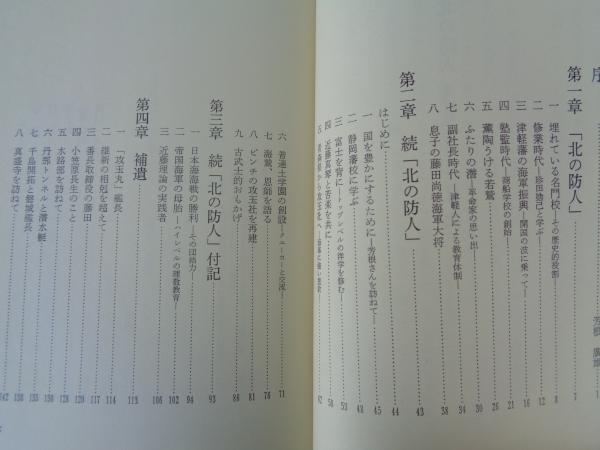 序
第一章 「北の防人」 7
一 埋れている名門校―その歴史的役割 8
二 修業時代―珍田捨己と学ぶ 12
三 津軽藩の海軍振興―開国の波に乗って― 16
四 塾監時代―商船学校の創始 21
五 薫陶うける若鷲 26
六 ふたりの潜―革命家の思い出― 30
七 副社長時代―津軽人による教育体制― 34
八 息子の藤田尚徳海軍大将 38
第二章 続「北の防人」 43
はじめに 44
一 国を豊かにするために―芳根さんを訪ねて― 45
二 静岡藩校に学ぶ 48
三 富士を背に―トップレベルの洋学を修む― 53
四 近藤真琴と苦楽を共に 58
五 62
六 普連土学園の創設―クェーカーと交流― 71
七 海鷲、恩師を語る 76
八 ピンチの攻玉社を再建 81
九 古武士的おもかげ 86
第三章 続「北の防人」付記 93
一 日本海海戦の勝利―その団結力― 94
二 帝国海軍の母胎―ハイレベルの理数教育― 102
三 近藤理論の実践者 106
第四章 補遺 113
一 「攻玉丸」艦長 114
二 維新の相剋を超えて 117
三 番長取締役の藤田 120
四 小笠原長生のこと 128
五 水路部を訪ねて 130
六 丹那トンネルと潜水艇 133
七 千島開拓と磐城艦長 138
八 真盛寺を訪ねて 142